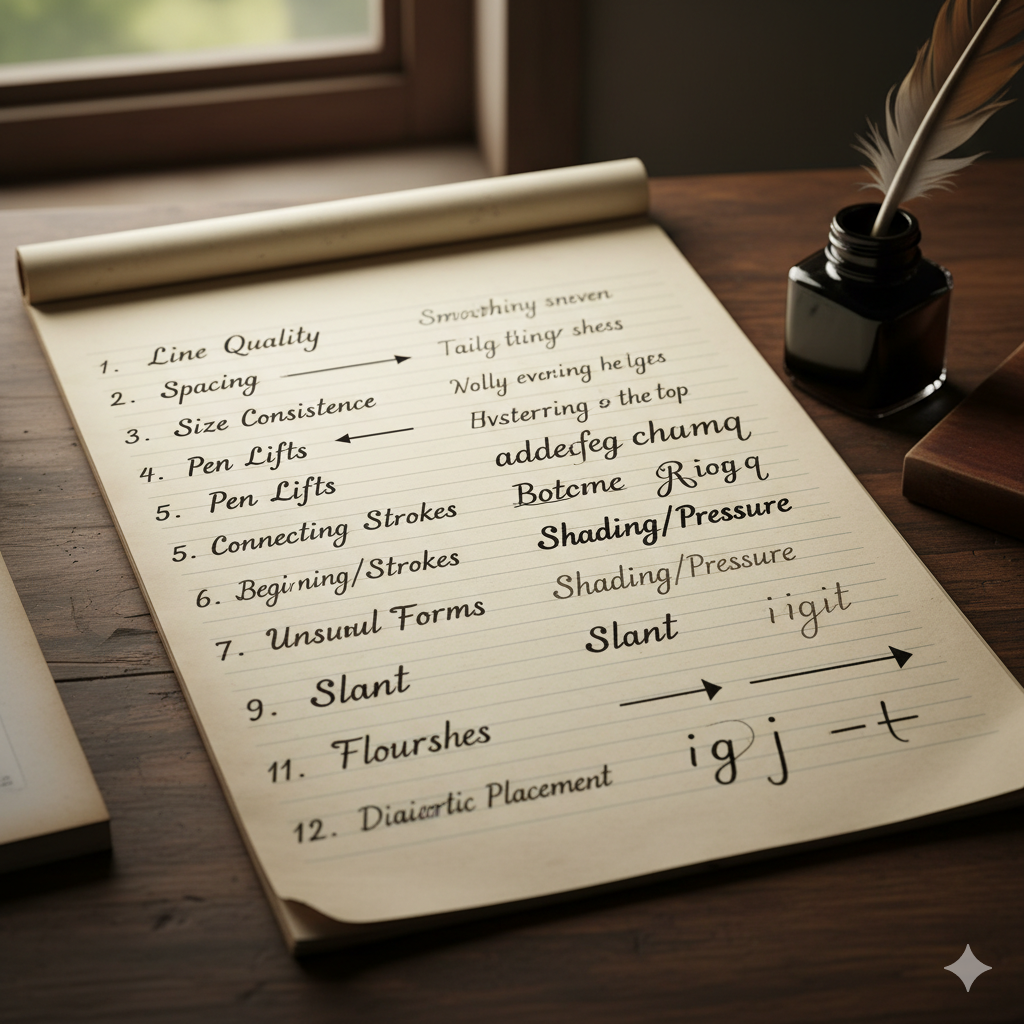 1. Line Quality
Smoothiny sneven
2. Spacing
Tailg thing shess
3. Size Consistence
Nolly evening helges
4. Pen Lifts
the top
5. Pen Lifts
chumq
5. Connecting Strokes
Botcme Riogq
6. Beginning/Strokes
Shading/Pressure
7. Forms
Shading/Pressure
9. Slant
Slant iigit
11. Flourshes
ig j -t
12. Placement